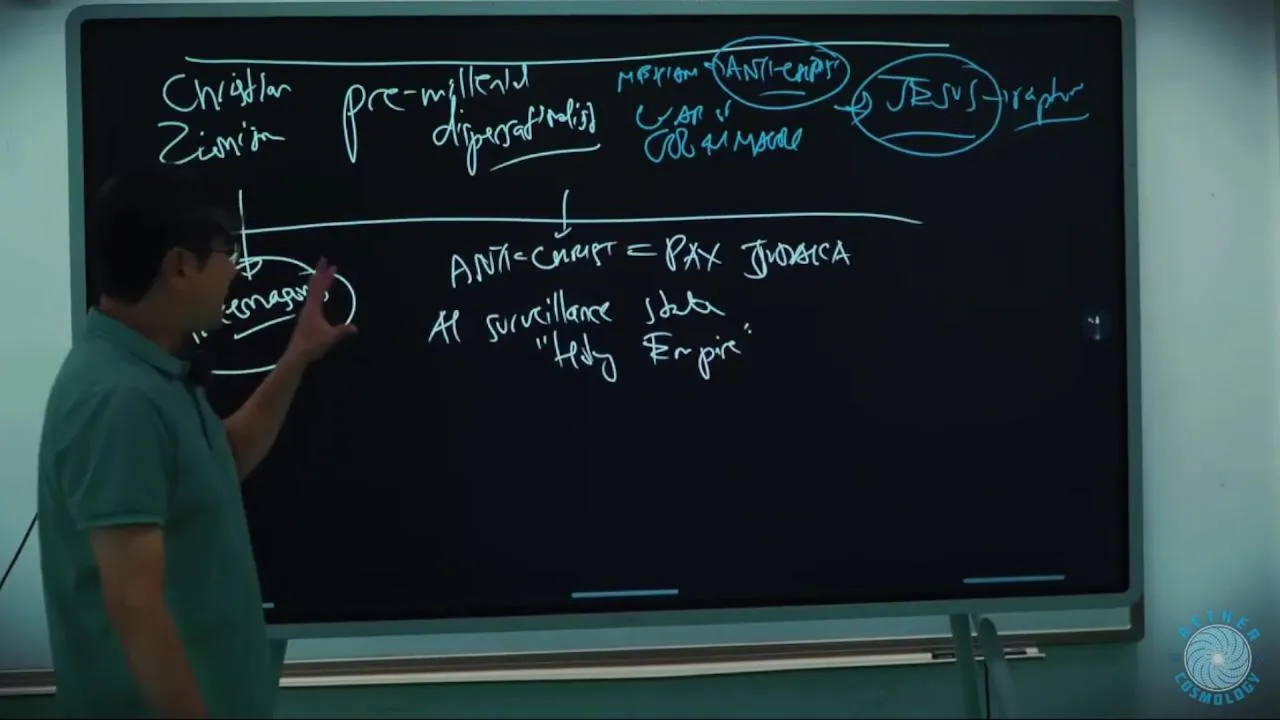 Christian
Zionism
pre-millenial
dispensationalist
ANTI-CHRIST
WAR
JESUS → rapture
ANTI-CHRIST = PAX JUDAICA
AI surveillance state
"Holy Empire"
AETHER
COSMOLOGY